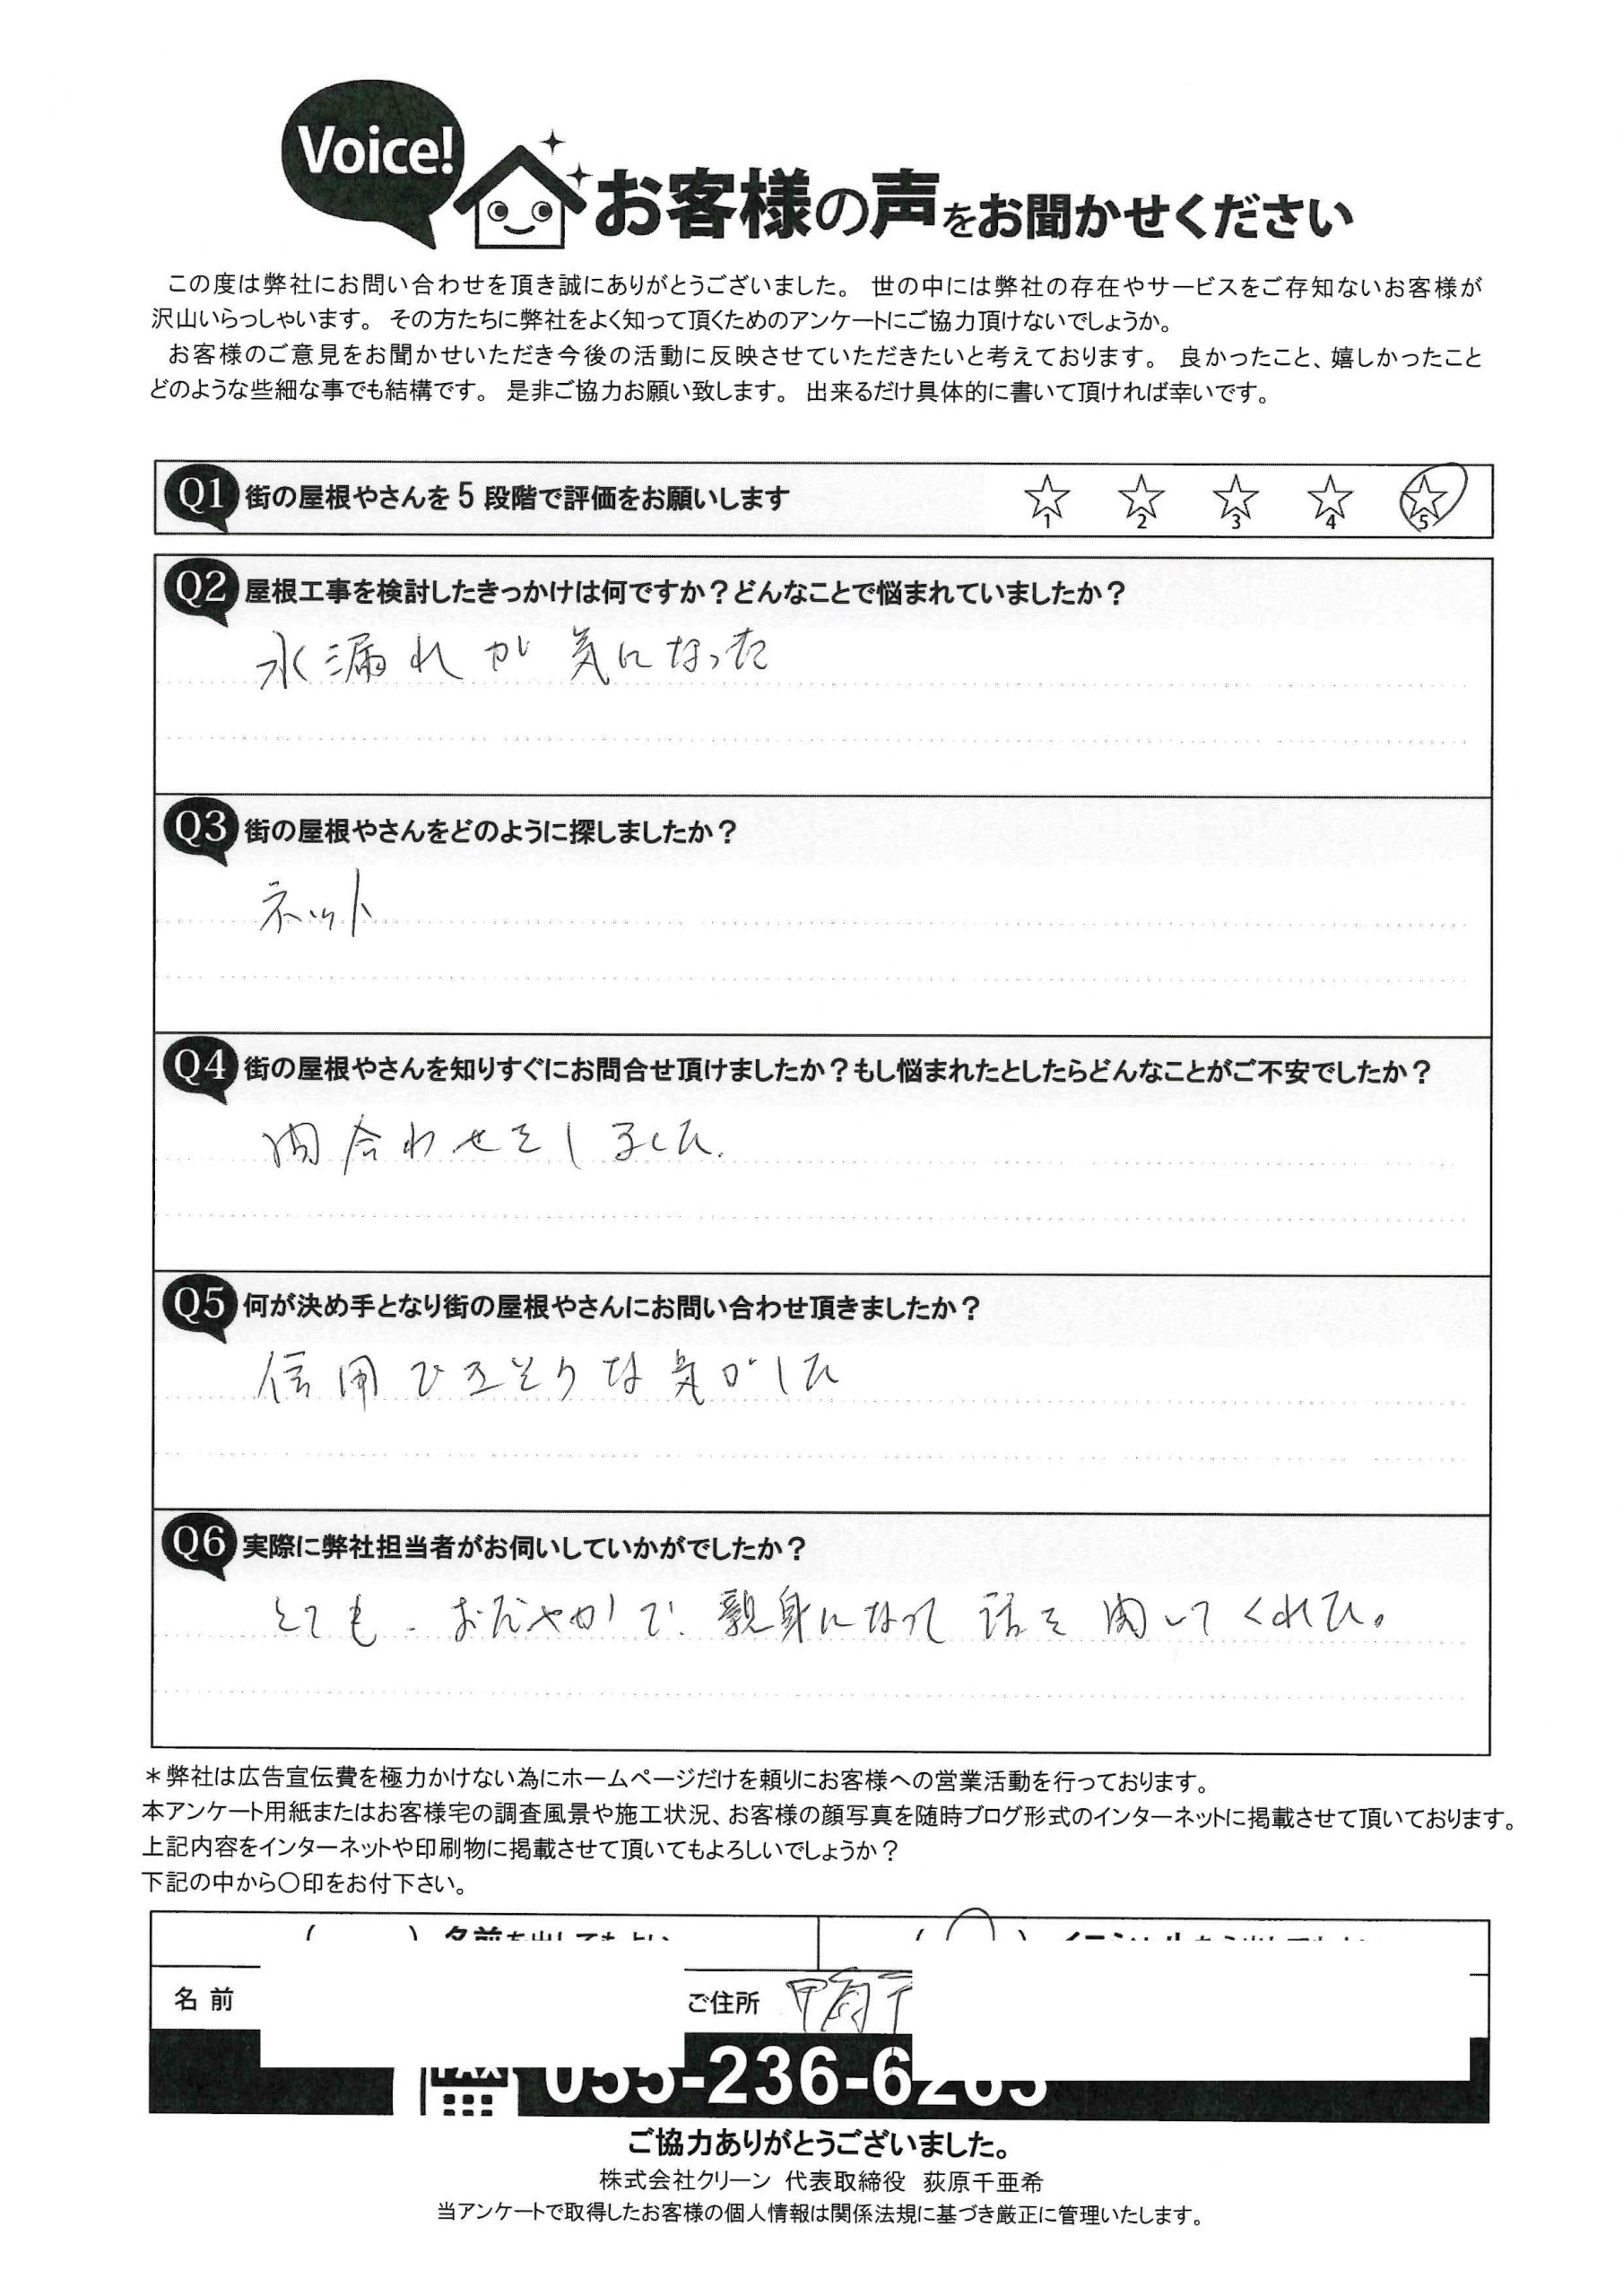 Voice!
お客様の声をお聞かせください
この度は弊社にお問い合わせを頂き誠にありがとうございました。 世の中には弊社の存在やサービスをご存知ないお客様が
沢山いらっしゃいます。 その方たちに弊社をよく知って頂くためのアンケートにご協力頂けないでしょうか。
お客様のご意見をお聞かせいただき今後の活動に反映させていただきたいと考えております。 良かったこと、嬉しかったこと
どのような些細な事でも結構です。 是非ご協力お願い致します。 出来るだけ具体的に書いて頂ければ幸いです。
Q1 街の屋根やさんを5段階で評価をお願いします 1 2 3 4 5
Q2 屋根工事を検討したきっかけは何ですか？どんなことで悩まれていましたか？
水漏れが気になった
Q3 街の屋根やさんをどのように探しましたか？
ネット
Q4 街の屋根やさんを知りすぐにお問合せ頂けましたか？もし悩まれたとしたらどんなことがご不安でしたか？
問合わせをしました.
Q5 何が決め手となり街の屋根やさんにお問い合わせ頂きましたか？
信用できそうな気がした
Q6 実際に弊社担当者がお伺いしていかがでしたか？
とても、おだやかで、親身になって話を聞いてくれた。
＊弊社は広告宣伝費を極力かけない為にホームページだけを頼りにお客様への営業活動を行っております。
本アンケート用紙またはお客様宅の調査風景や施工状況、お客様の顔写真を随時ブログ形式のインターネットに掲載させて頂いております。
上記内容をインターネットや印刷物に掲載させて頂いてもよろしいでしょうか？
下記の中から〇印をお付下さい。
( ) 名前を出してもよい ( ○ )
名前 ご住所
055-236-6
ご協力ありがとうございました。
株式会社クリーン 代表取締役 荻原千亜希
当アンケートで取得したお客様の個人情報は関係法規に基づき厳正に管理いたします。